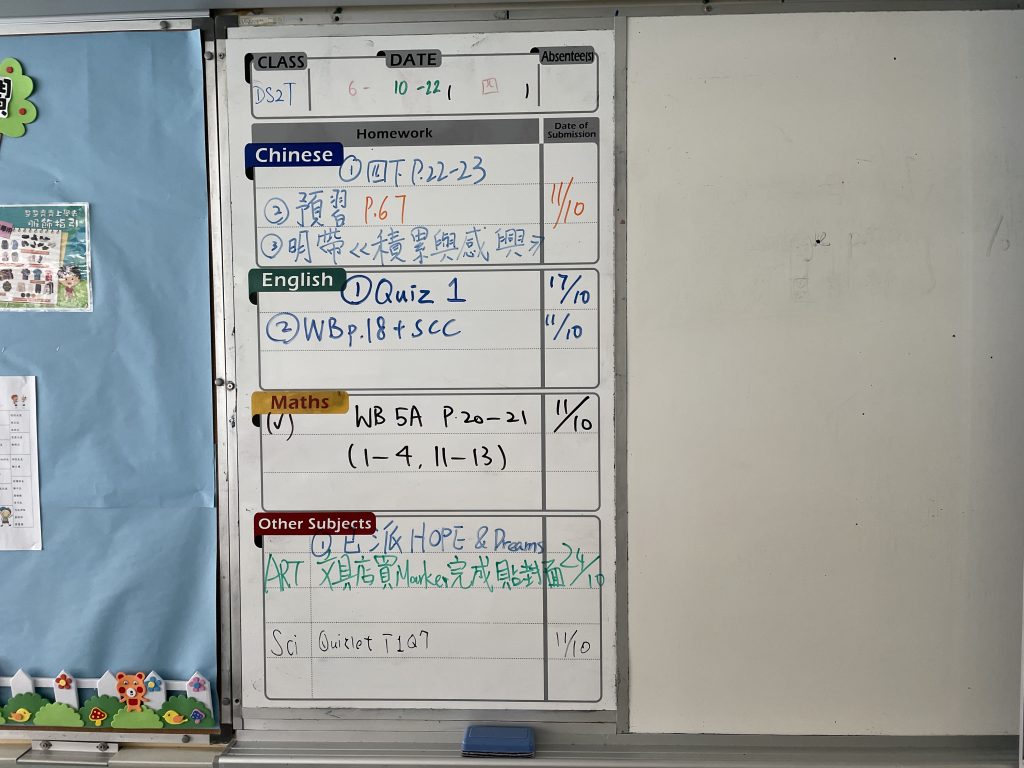 CLASS DATE Absentee(s)
DS2T 6-10-22 (四)
Homework Date of Submission
Chinese
① 四下 P.22-23
② 預習 P.67 11/10
③ 明帶《積累與感興》
English
① Quiz 1 17/10
② WB p.18 + SCC 11/10
Maths
(✓) WB 5A P.20-21 11/10
(1-4, 11-13)
Other Subjects
① 已派 HOPE & Dreams
ART 文具店買Marker完成貼封面 24/10
Sci Quizlet T1Q7 11/10
服飾指引